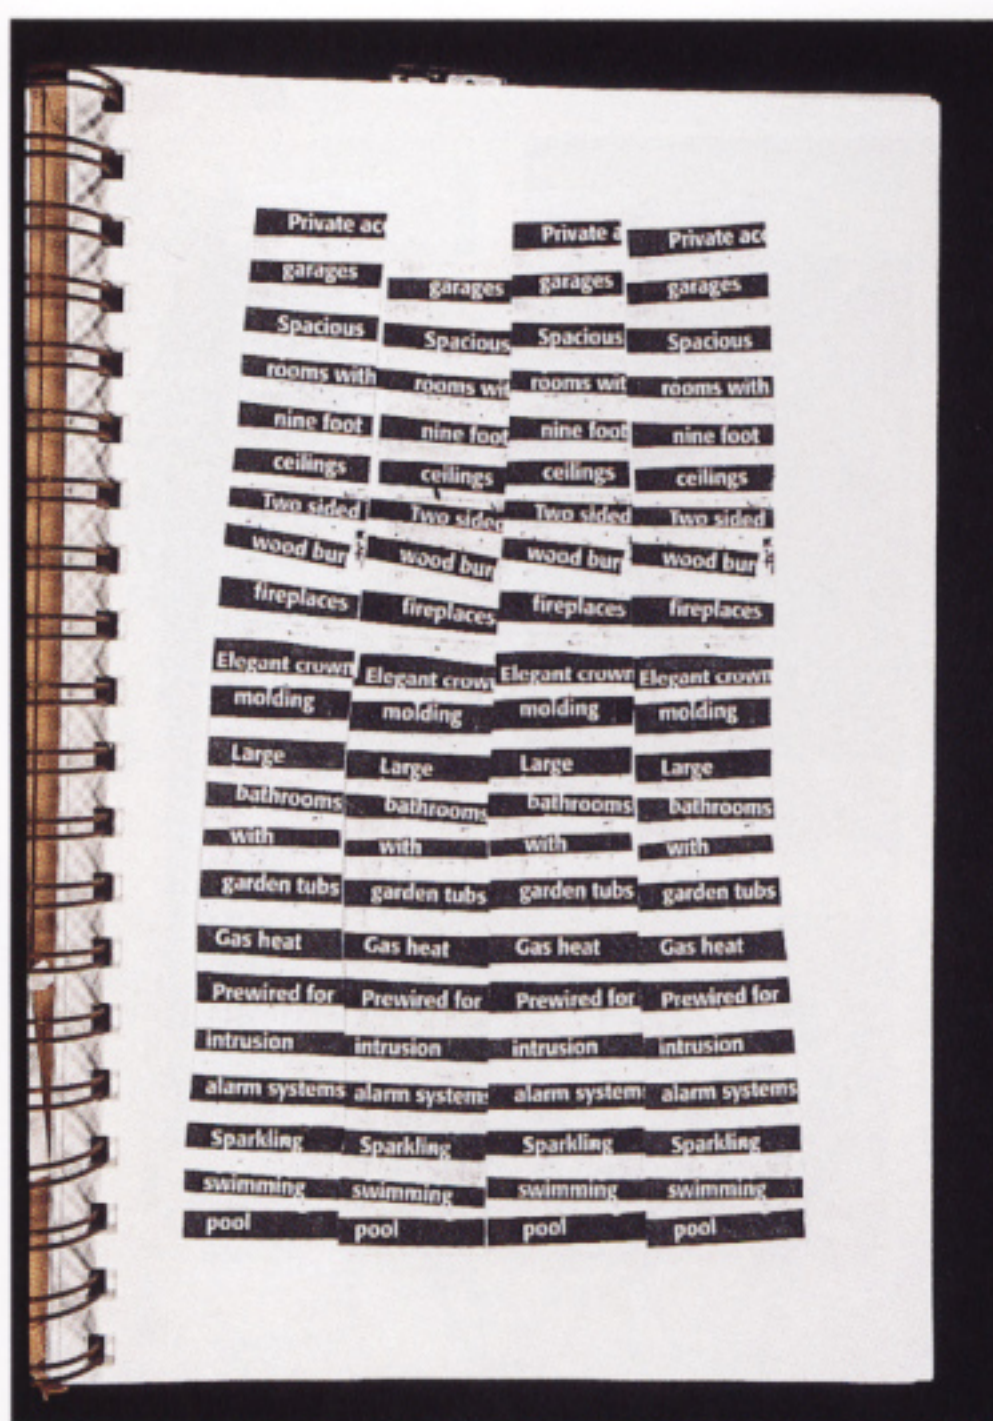 Private acc
garages
Spacious
rooms with
nine foot
ceilings
Two sided
wood bur
fireplaces
Elegant crown
molding
Large
bathrooms
with
garden tubs
Gas heat
Prewired for
intrusion
alarm systems
Sparkling
swimming
pool
garages
Spacious
rooms wit
nine foot
ceilings
Two sided
wood bur
fireplaces
Elegant crown
molding
Large
bathrooms
with
garden tubs
Gas heat
Prewired for
intrusion
alarm systems
Sparkling
swimming
pool
Private a
garages
Spacious
rooms wit
nine foot
ceilings
Two sided
wood bur
fireplaces
Elegant crown
molding
Large
bathrooms
with
garden tubs
Gas heat
Prewired for
intrusion
alarm system
Sparkling
swimming
pool
Private acc
garages
Spacious
rooms with
nine foot
ceilings
Two sided
wood bur
fireplaces
Elegant crown
molding
Large
bathrooms
with
garden tubs
Gas heat
Prewired for
intrusion
alarm systems
Sparkling
swimming
pool